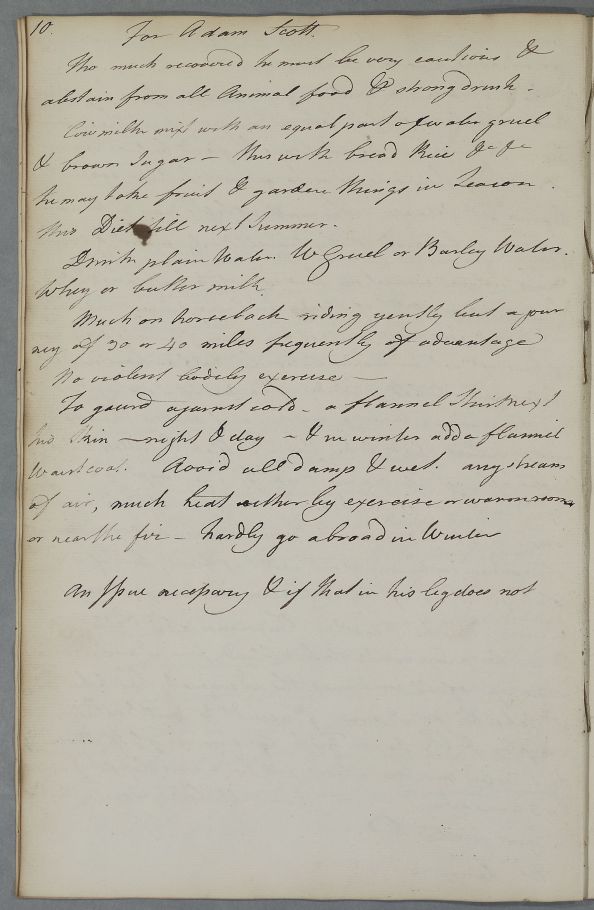 10.
For Adam Scott.
Tho much recovered he must be very cautious &
abstain from all Animal food & strong drink -
Cow milk mixt with an equal part of water gruel
& brown Sugar - this with bread Rice &c &c
he may take fruit & gardene things in Season.
this Diet till next Summer.
Drink plain Water. W Gruel or Barley Water.
Whey or butter milk
Much on horseback riding gently but a jour
ney of 30 or 40 miles frequently of advantage
No violent bodily exercise -
To gaurd against cold - a flannel Shirt next
his Skin - night & day - & in winter add a flannel
Waistcoat. Avoid all damp & wet. any stream
of air, much heat either by exercise or warm room
or near the fir - hardly go abroad in Winter
An Issue necessary & if that in his leg does not